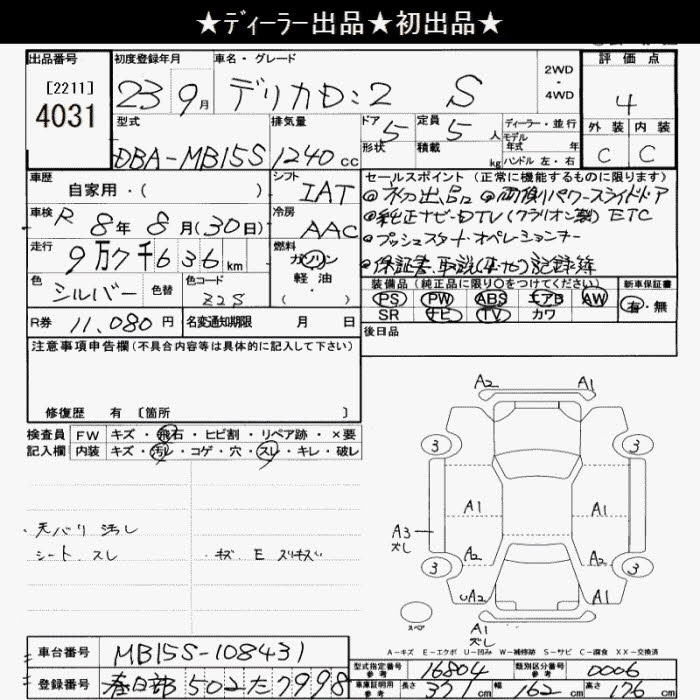 ★ディーラー出品★初出品★
出品番号 [2211] 4031
初度登録年月 23 9月
車名・グレード デリカD:2 S
2WD・4WD
評価点 4
外装 C 内装 C
型式 DBA-MB15S
排気量 1240 cc
ドア 5 形状
定員 5 人 積載 kg
ディーラー・並行
モデル年式 年
ハンドル 左・右
車歴 自家用・( )
シフト IAT
車検 R 8年 8月(30日)
冷房 AAC
走行 9万7千636km
燃料 ガソリン 軽・油 ( )
色 シルバー 色替
色コード Z2S
R券 11,080円
名変通知期限 月 日
セールスポイント(正常に機能するものに限ります)
◎初出品 ◎両側パワースライドドア
◎純正ナビ-DTV(クラリオン製) ETC
◎プッシュスタートオペレーションキー
◎保証書、取説(車・ナビ)記録簿
装備品(純正品に限り○をつけてください)
PS PW ABS エアB AW
SR ナビ TV カワ
新車保証書 有・無
後日品
注意事項申告欄(不具合内容等は具体的に記入して下さい)
修復歴 有 〔箇所 〕
検査員 FW キズ・飛石・ヒビ割・リペア跡・×要
記入欄 内装 キズ・汚レ・コゲ・穴・スレ・キレ・破レ
・天バリ 汚レ
シート、スレ
・キズ、E スリキズ
A2 A1
3 3
A1 A1
A3 ズレ
A2 A2
3 3
UA2 A1
スペア
A1
ズレ
A-キズ E-エクボ U-凹み W-補修跡 S-サビ C-腐食 XX-交換済
車台番号 MB15S-108431
登録番号 春日部 502た7998
型式指定番号 参考 16804
類別区分番号 参考 0006
車庫証明用 参考 長さ 371cm 幅 162cm 高さ 176cm